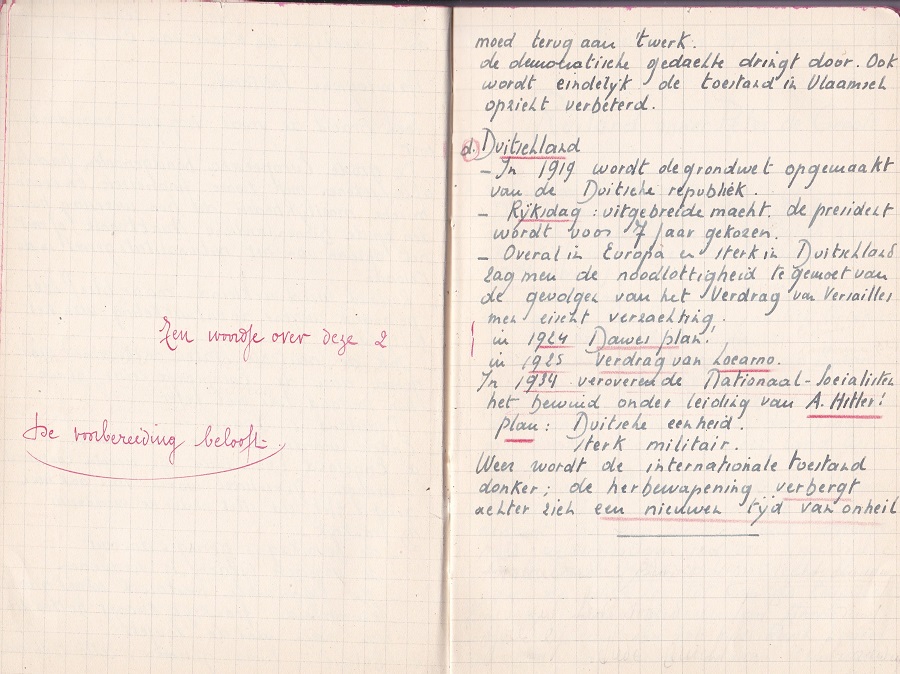 Een woordje over deze 2
De voorbereiding belooft.
moed terug aan 't werk.
de democratische gedachte dringt door. Ook
wordt eindelijk de toestand in Vlaamsch
opzicht verbeterd.
d. Duitschland
- In 1919 wordt de grondwet opgemaakt
van de Duitsche republiek.
- Rijksdag: uitgebreide macht. de president
wordt voor 7 jaar gekozen.
- Overal in Europa en sterk in Duitschland
zag men de noodlottigheid te gemoet van
de gevolgen van het Verdrag van Versailles
men eischt verzachting.
in 1924 Dawes plan!
in 1925 Verdrag van Locarno.
In 1934 veroveren de Nationaal-Socialisten
het bewind onder leiding van A. Hitler!
plan: Duitsche eenheid.
sterk militair.
Weer wordt de internationale toestand
donker; de herbewapening verbergt
achter zich een nieuwen tijd van onheil